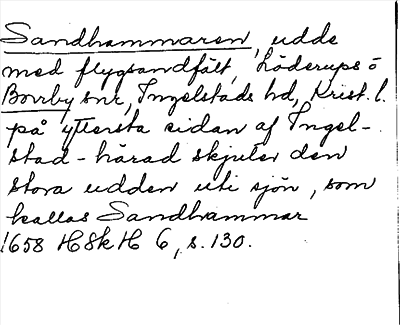 Sandhammaren, udde
med flygsandfält, Löderups ö
Borrby snr, Ingelstads hd, Krist. l.
på yttersta sidan af Ingel-
stad-härad skjuler den
stora udden uti sjön, som
kallas Sandhammar
1658 HSkH 6, s. 130.